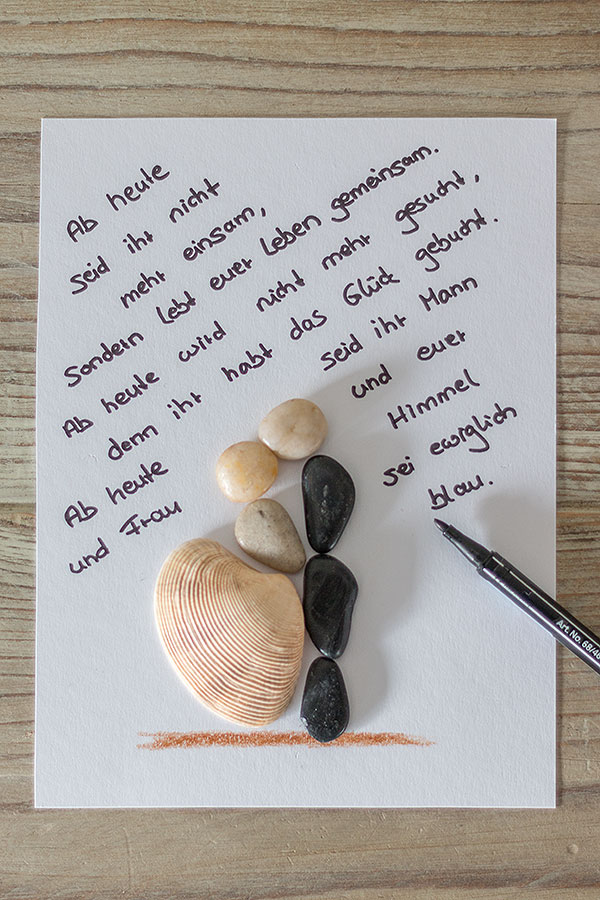 Ab heute
seid ihr nicht
mehr einsam,
sondern lebt euer Leben gemeinsam.
Ab heute wird nicht mehr gesucht,
denn ihr habt das Glück gebucht.
Ab heute seid ihr Mann
und Frau und euer
Himmel
sei ewiglich
blau.
Art. No. 68/46